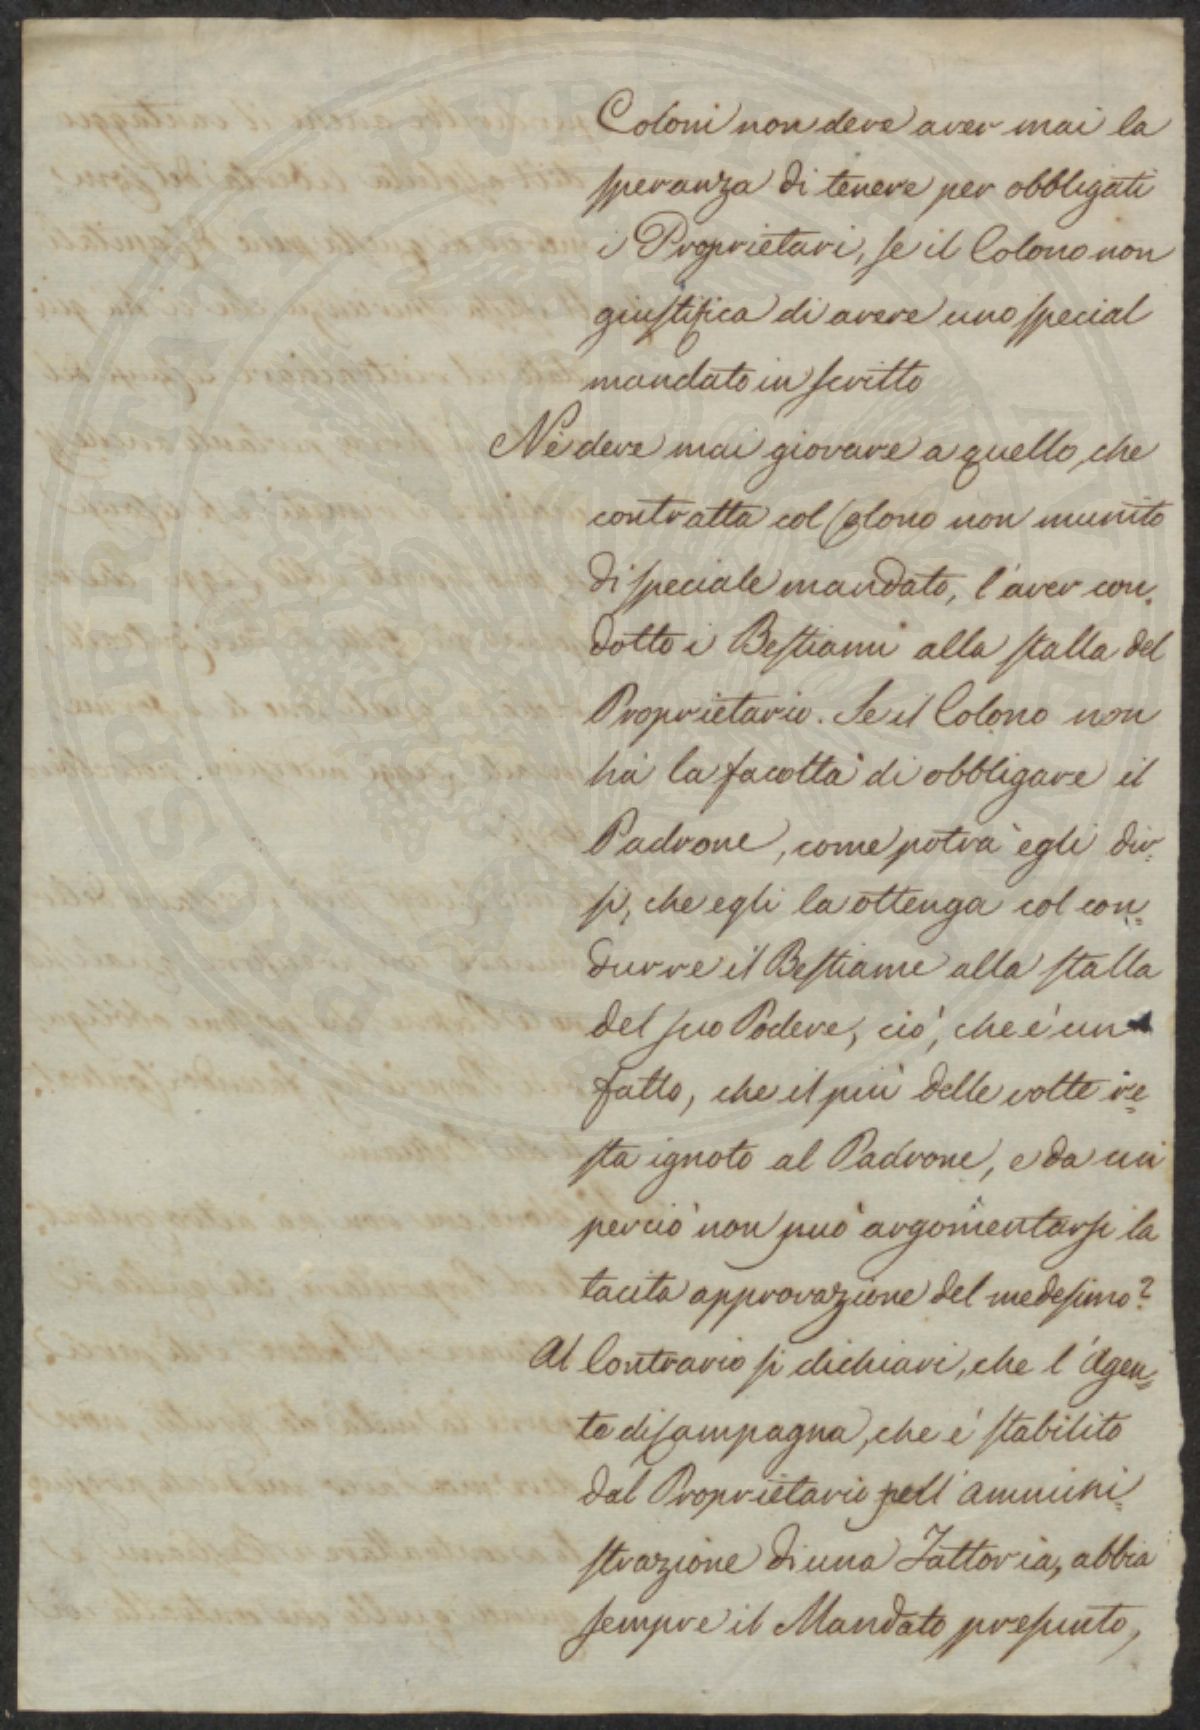 Coloni non deve aver mai la
speranza di tenere per obbligati
i Proprietari, se il Colono non
giustifica di avere uno special
mandato in scritto
Nè deve mai giovare a quello, che
contratta col Colono non munito
di speciale mandato, l'aver con-
dotto i Bestiami alla stalla del
Proprietario. Se il Colono non
hà la facoltà di obbligare il
Padrone, come potrà egli dir-
si, che egli la ottenga col con=
durre il Bestiame alla stalla
del suo Podere, ciò, che è un
fatto, che il più delle volte re=
sta ignoto al Padrone, e da cui
perciò non può argomentarsi la
tacita approvazione del medesimo?
Al Contrario si dichiari, che l'Agen=
te di Campagna, che è stabilito
dal Proprietario pell'ammini=
strazione di una Fattoria, abbia
sempre il Mandato presunto,